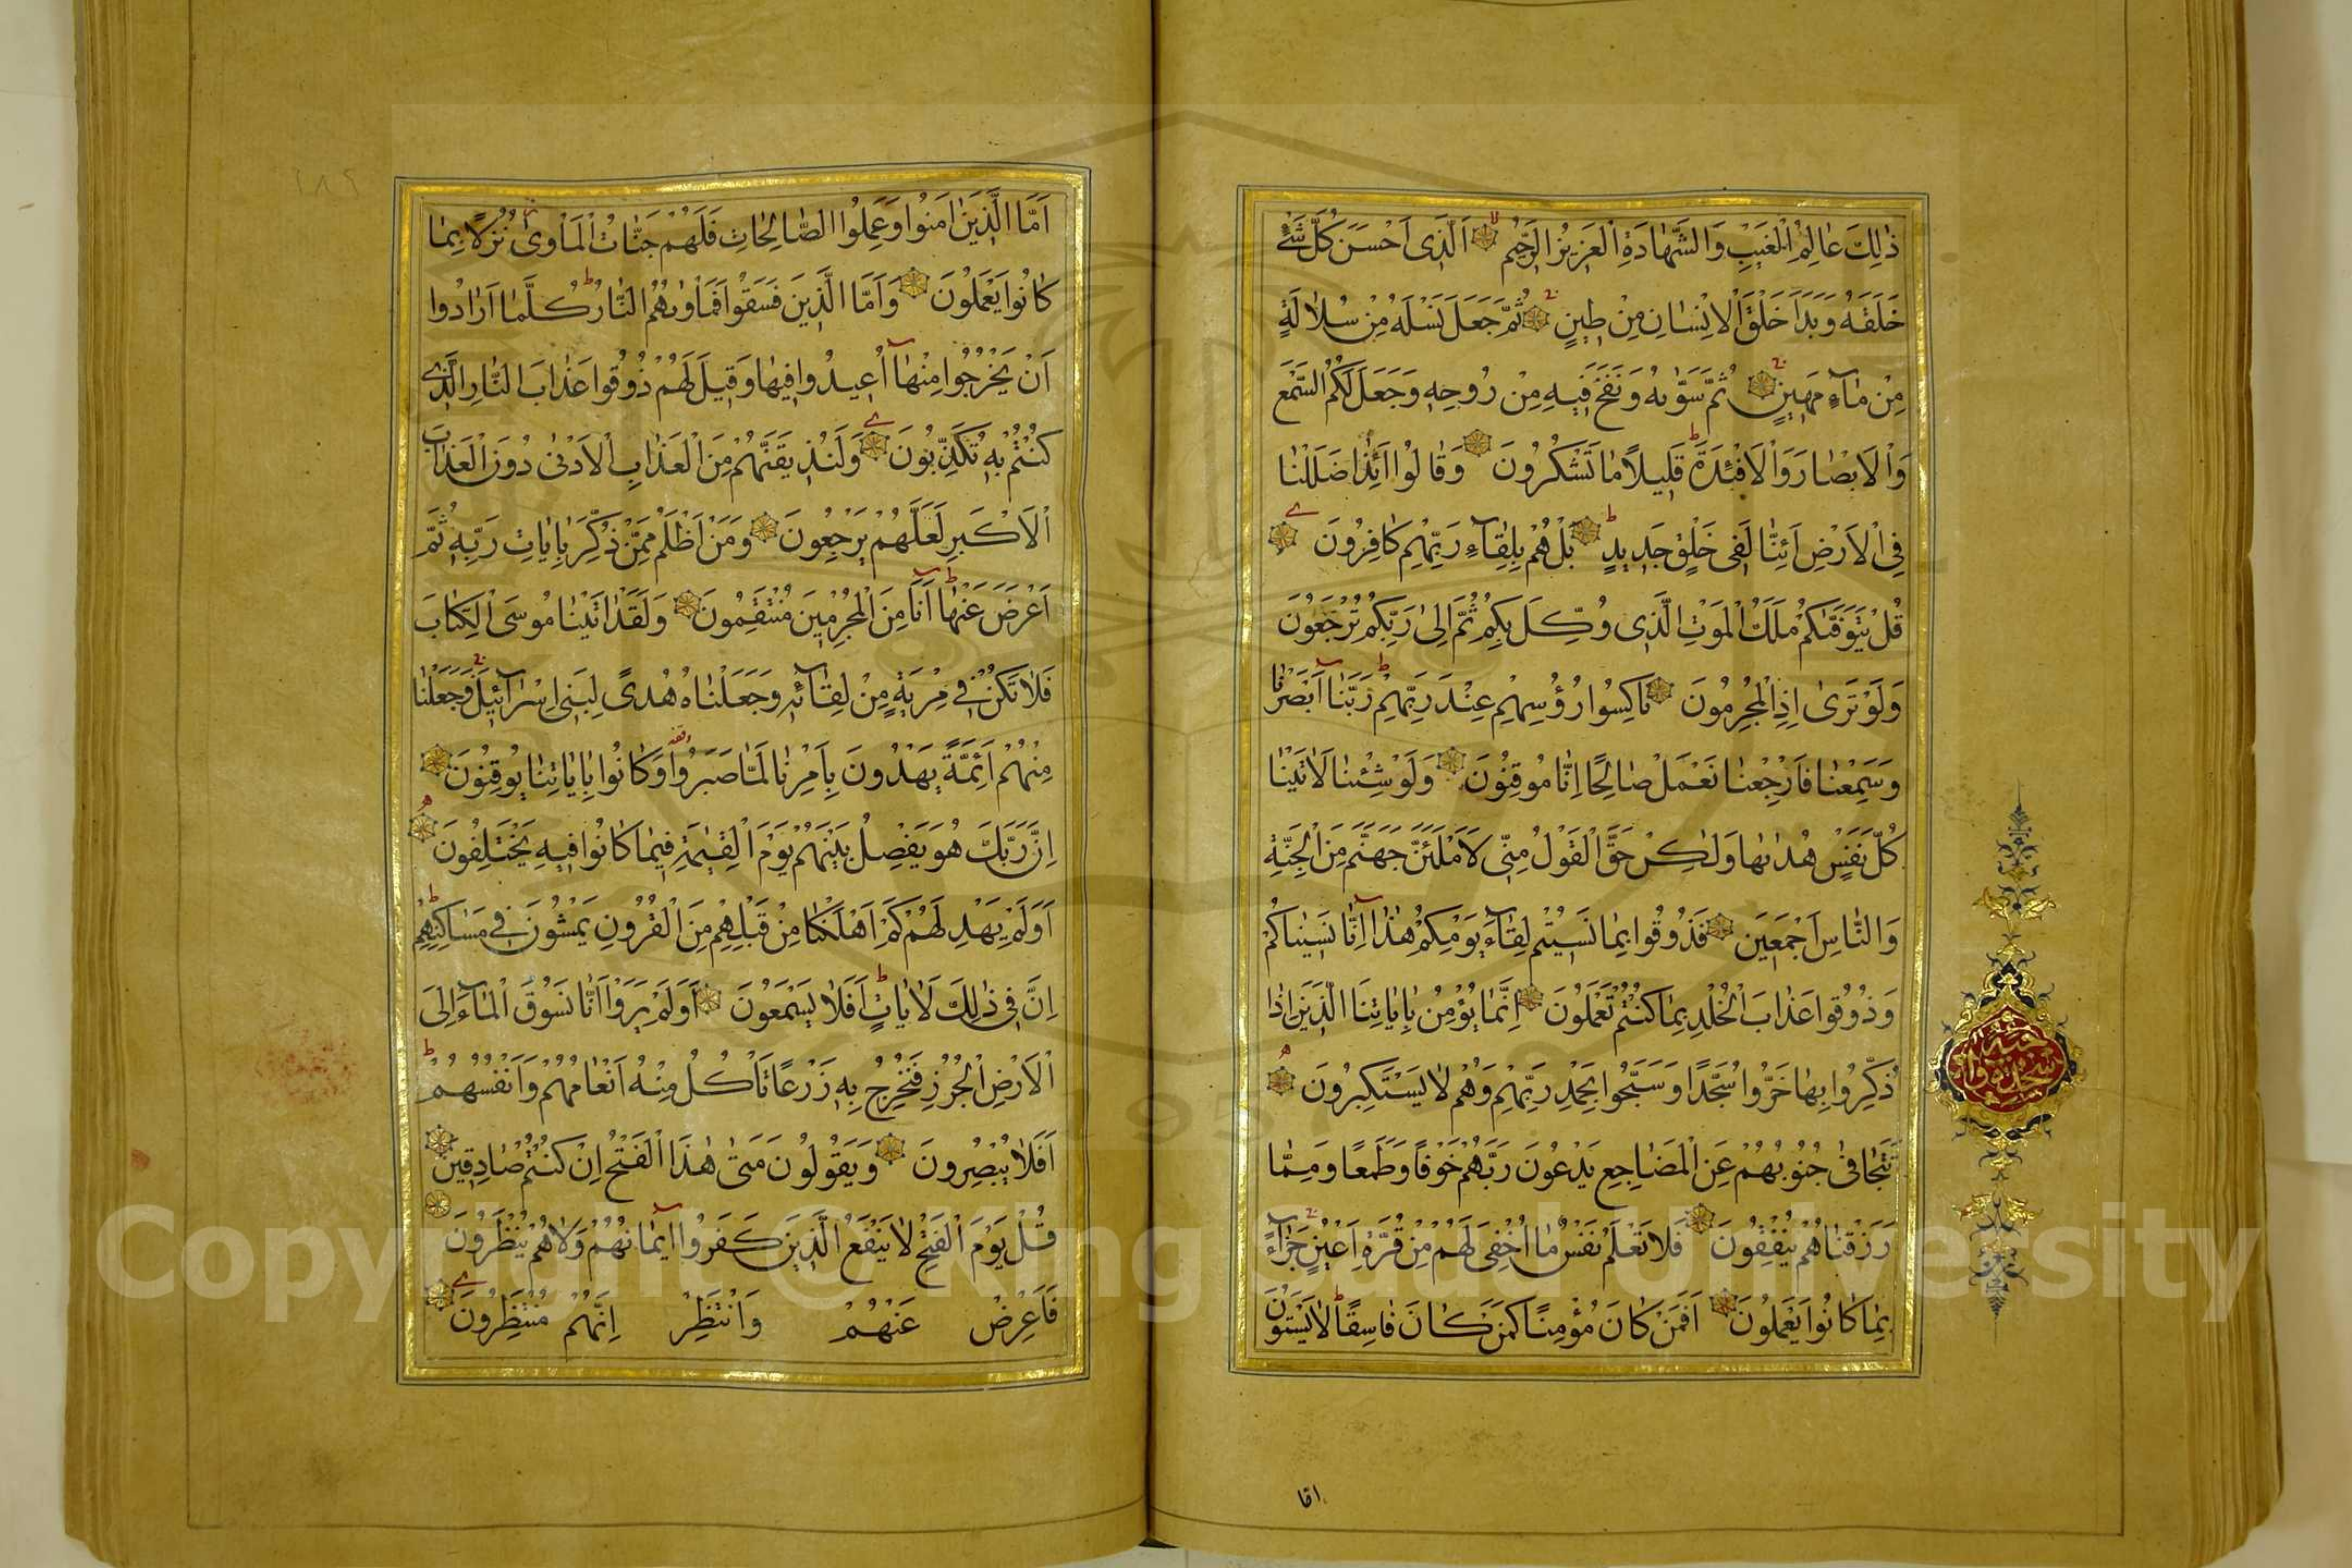 ذٰلِكَ عَالِمُ الْغَيْبِ وَالشَّهَادَةِ الْعَزِيزُ الرَّحِيمُ اَلَّذِى اَحْسَنَ كُلَّ شَيْءٍ
خَلَقَهُ وَبَدَاَ خَلْقَ الْاِنْسَانِ مِنْ طِينٍ ثُمَّ جَعَلَ نَسْلَهُ مِنْ سُلَالَةٍ
مِنْ مَاءٍ مَهِينٍ ثُمَّ سَوّٰيهُ وَنَفَخَ فِيهِ مِنْ رُوحِهِ وَجَعَلَ لَكُمُ السَّمْعَ
وَالْاَبْصَارَ وَالْاَفْئِدَةَ قَلِيلًا مَا تَشْكُرُونَ وَقَالُوا ائِذَا ضَلَلْنَا
فِى الْاَرْضِ اَئِنَّا لَفِى خَلْقٍ جَدِيدٍ بَلْ هُمْ بِلِقَاءِ رَبِّهِمْ كَافِرُونَ
قُلْ يَتَوَفّٰيكُمْ مَلَكُ الْمَوْتِ الَّذِى وُكِّلَ بِكُمْ ثُمَّ اِلٰى رَبِّكُمْ تُرْجَعُونَ
وَلَوْ تَرٰى اِذِ الْمُجْرِمُونَ نَاكِسُوا رُؤُسِهِمْ عِنْدَ رَبِّهِمْ رَبَّنَا اَبْصَرْنَا
وَسَمِعْنَا فَارْجِعْنَا نَعْمَلْ صَالِحًا اِنَّا مُوقِنُونَ وَلَوْ شِئْنَا لَاٰتَيْنَا
كُلَّ نَفْسٍ هُدٰيهَا وَلٰكِنْ حَقَّ الْقَوْلُ مِنِّى لَاَمْلَئَنَّ جَهَنَّمَ مِنَ الْجِنَّةِ
وَالنَّاسِ اَجْمَعِينَ فَذُوقُوا بِمَا نَسِيتُمْ لِقَاءَ يَوْمِكُمْ هٰذَا اِنَّا نَسِينَاكُمْ
وَذُوقُوا عَذَابَ الْخُلْدِ بِمَا كُنْتُمْ تَعْمَلُونَ اِنَّمَا يُؤْمِنُ بِاٰيَاتِنَا الَّذِينَ اِذَا
ذُكِّرُوا بِهَا خَرُّوا سُجَّدًا وَسَبَّحُوا بِحَمْدِ رَبِّهِمْ وَهُمْ لَا يَسْتَكْبِرُونَ
تَتَجَافٰى جُنُوبُهُمْ عَنِ الْمَضَاجِعِ يَدْعُونَ رَبَّهُمْ خَوْفًا وَطَمَعًا وَمِمَّا
رَزَقْنَاهُمْ يُنْفِقُونَ فَلَا تَعْلَمُ نَفْسٌ مَا اُخْفِىَ لَهُمْ مِنْ قُرَّةِ اَعْيُنٍ جَزَاءً
بِمَا كَانُوا يَعْمَلُونَ اَفَمَنْ كَانَ مُؤْمِنًا كَمَنْ كَانَ فَاسِقًا لَا يَسْتَوُونَ
اما
اَمَّا الَّذِينَ اٰمَنُوا وَعَمِلُوا الصَّالِحَاتِ فَلَهُمْ جَنَّاتُ الْمَاْوٰى نُزُلًا بِمَا
كَانُوا يَعْمَلُونَ وَاَمَّا الَّذِينَ فَسَقُوا فَمَاْوٰيهُمُ النَّارُ كُلَّمَا اَرَادُوا
اَنْ يَخْرُجُوا مِنْهَا اُعِيدُوا فِيهَا وَقِيلَ لَهُمْ ذُوقُوا عَذَابَ النَّارِ الَّذِى
كُنْتُمْ بِهِ تُكَذِّبُونَ وَلَنُذِيقَنَّهُمْ مِنَ الْعَذَابِ الْاَدْنٰى دُونَ الْعَذَابِ
الْاَكْبَرِ لَعَلَّهُمْ يَرْجِعُونَ وَمَنْ اَظْلَمُ مِمَّنْ ذُكِّرَ بِاٰيَاتِ رَبِّهِ ثُمَّ
اَعْرَضَ عَنْهَا اِنَّا مِنَ الْمُجْرِمِينَ مُنْتَقِمُونَ وَلَقَدْ اٰتَيْنَا مُوسَى الْكِتَابَ
فَلَا تَكُنْ فِى مِرْيَةٍ مِنْ لِقَائِهِ وَجَعَلْنَاهُ هُدًى لِبَنِى اِسْرَائِيلَ وَجَعَلْنَا
مِنْهُمْ اَئِمَّةً يَهْدُونَ بِاَمْرِنَا لَمَّا صَبَرُوا وَكَانُوا بِاٰيَاتِنَا يُوقِنُونَ
اِنَّ رَبَّكَ هُوَ يَفْصِلُ بَيْنَهُمْ يَوْمَ الْقِيٰمَةِ فِيمَا كَانُوا فِيهِ يَخْتَلِفُونَ
اَوَلَمْ يَهْدِ لَهُمْ كَمْ اَهْلَكْنَا مِنْ قَبْلِهِمْ مِنَ الْقُرُونِ يَمْشُونَ فِى مَسَاكِنِهِمْ
اِنَّ فِى ذٰلِكَ لَاٰيَاتٍ اَفَلَا يَسْمَعُونَ اَوَلَمْ يَرَوْا اَنَّا نَسُوقُ الْمَاءَ اِلَى
الْاَرْضِ الْجُرُزِ فَنُخْرِجُ بِهِ زَرْعًا تَاْكُلُ مِنْهُ اَنْعَامُهُمْ وَاَنْفُسُهُمْ
اَفَلَا يُبْصِرُونَ وَيَقُولُونَ مَتٰى هٰذَا الْفَتْحُ اِنْ كُنْتُمْ صَادِقِينَ
قُلْ يَوْمَ الْفَتْحِ لَا يَنْفَعُ الَّذِينَ كَفَرُوا اِيمَانُهُمْ وَلَا هُمْ يُنْظَرُونَ
فَاَعْرِضْ عَنْهُمْ وَانْتَظِرْ اِنَّهُمْ مُنْتَظِرُونَ
٢٨٢
Copyright © King Saud University
1957